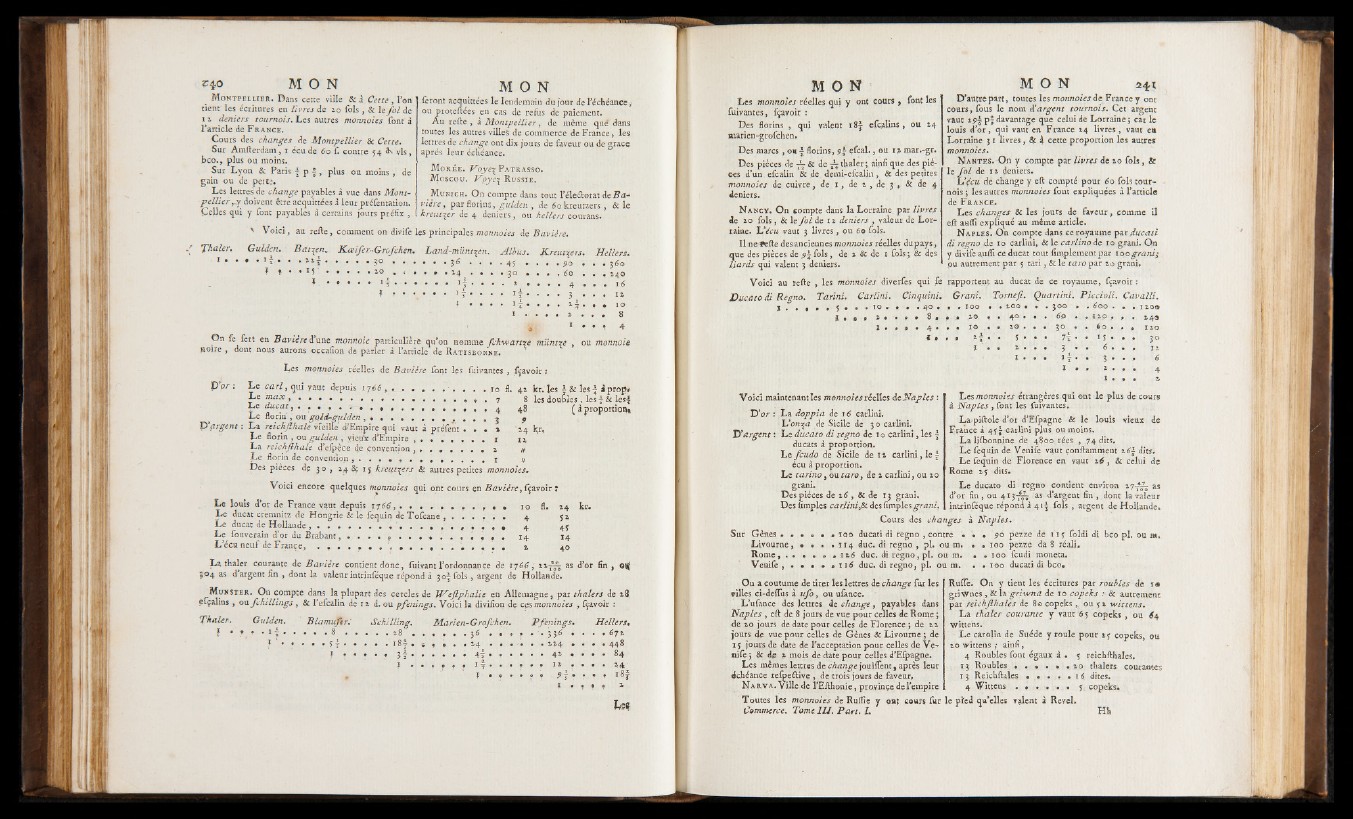 240 MON MON
MONTPELLIER. Dans cette ville & à Cette, l'on
tient les écritures en livres de 20 sols, & le sol de
12 deniers tournois. Les autres monnoies sont à
l'article de FRANCE.
Cours des changes de Montpellier & Cette.
Sur Amsterdam, 1 écu de 60 s. contre 54 vls,
bco., plus ou moins.
Sur Lyon & Paris plus ou moins, de
gain ou de perte.
Les lettres de change payables à vue dans Mont-
pellier, y doivent être acquittées à leur présentation.
Celles qui y sont payables à certains jours préfix,
seront acquittées le lendemain du jour de l'échéance,
ou protestées en cas de refus de paiement.
Au reste, à Montpellier, de même que dans
toutes les autres villes de commerce de France, les
lettres de change ont dix jours de faveur ou de grace
après leur échéance.
MORÉE. Voyez PATRASSO.
MOSCOU. Voyez RUSSIE.
MUNICH. On compte dans tout l'électorat de Ba-
vière, par florins, gulden, de 60 kreutzers, & le
kreutzer de 4 deniers, ou hellers courans.
Voici, au reste, comment on divise les principales monnoies de Bavière.
Thaler. Gulden. Batzen. Kæiser-Groschen. Land-müntzen. Albus. Kreutzers. Hellers.
1 . . . 1½ . . . 22½ . . . 30 . . . 36 . . . 45 . . . 90 . . . 360
1 . . . 15 . . . 20 . . . 24 . . . 30 . . . 60 . . . 240
1 . . . 1⅓ . . . 1⅗ . . . 2 . . . 4 . . . 16
1 . . . 1⅕ . . . 1½ . . . 3 . . . 12
1 . . . 1¼ . . . 2½ . . . 10
1 . . . 2 . . . 8
1 . . . 4
On se sert en Bavière d'une monnoie particulière qu'on nomme schwartze müntze, ou monnoie
noire, dont nous aurons occasion de parler à l'article de RATISBONNE.
Les monnoies réelles de Bavière sont les suivantes, sçavoir :
D'or : Le carl, qui vaut depuis 1766, . . . 10 fl. 42 kr. les ½ & les ¼ à prop.
Le max, . . . 7 8 les doubles, les ½ & les ¼
Le ducat, . . . 4 48 (à proportion.
Le florin, ou gold-gulden, . . . 3 9
D'argent : La reichsthale vieille d'Empire qui vaut à présent . . . 2 24 kr.
Le florin, ou gulden, vieux d'Empire, . . . 1 12
La reichsthale d'espèce de convention, . . . 2 "
Le florin de convention, . . . 1 "
Des pièces de 30, 24 & 15 kreutzers & autres petites monnoies.
Voici encore quelques monnoies qui ont cours en Bavière, sçavoir :
Le louis d'or de France vaut depuis 1766, . . . 10 fl. 24 kr.
Le ducat cremnitz de Hongrie & le sequin de Toscane, . . . 4 52
Le ducat de Hollande, . . . 4 45
Le souverain d'or du Brabant, . . . 14 14
L'écu neuf de France, . . . 2 40
La thaler courante de Bavière contient donc, suivant l'ordonnance de 1766, as d'or fin, ou
304 as d'argent fin, dont la valeur intrinséque répond à 30½ sols, argent de Hollande.
MUNSTER. On compte dans la plupart des cercles de Westphalie en Allemagne, par thalers de 28
escalins, ou schillings, & l'escalin de 12 d. ou pfenings. Voici la division de ces monnoies, sçavoir :
Thaler. Gulden. Blamuser. Schilling. Marien-Groschen. Pfenings. Hellers.
1 . . . 1½ . . . 8 . . . 28 . . . 36 . . . 336 . . . 672
1 . . . 5⅓ . . . 18⅔ . . . 24 . . . 224 . . . 448
1 . . . 3½ . . . 4½ . . . 42 . . . 84
1 . . . 1 . . . 12 . . . 24
1 . . . 9⅓ . . . 18⅔
1 . . . 2
Les
MON MON 241
Les monnoies réelles qui y ont cours, sont les
suivantes, sçavoir :
Des florins, qui valent 18⅔ escalins, ou 24
marien-groschen.
Des marcs, ou ½ florins, 9⅓ escal., ou 12 mar.-gr.
Des pièces de & de thaler ; ainsi que des piè-
ces d'un escalin & de demi-escalin, & des petites
monnoies de cuivre, de 1, de 2, de 3, & de 4
deniers.
NANCY. On compte dans la Lorraine par livres
de 20 sols, & le sol de 12 deniers, valeur de Lor-
raine. L'écu vaut 3 livres, ou 60 sols.
Il ne reste des anciennes monnoies réelles du pays,
que des pièces de sols, de 2 & de 1 sols ; & des
liards qui valent 3 deniers.
D'autre part, toutes les monnoies de France y ont
cours, sous le nom d'argent tournois. Cet argent
vaut davantage que celui de Lorraine ; car le
louis d'or, qui vaut en France 24 livres, vaut en
Lorraine 31 livres, & à cette proportion les autres
monnoies.
NANTES. On y compte par livres de 20 sols, &
le sol de 12 deniers.
L'écu de change y est compté pour 60 sols tour-
nois ; les autres monnoies sont expliquées à l'article
de FRANCE.
Les changes & les jours de faveur, comme il
est aussi expliqué au même article.
NAPLES. On compte dans ce royaume par ducati
di regno de 10 carlini, & le carlino de 10 grani. On
y divise aussi ce ducat tout simplement par 100 grani ;
ou autrement par 5 tari, & le taro par 20 grani.
Voici au reste, les monnoies diverses qui se rapportent au ducat de ce royaume, sçavoir :
Ducato di Regno. Tarini. Carlini. Cinquini. Grani. Tornesi. Quartini. Piccioli. Cavalli.
1 . . . 5 . . . 10 . . . 40 . . . 100 . . . 200 . . . 300 . . . 600 . . . 1200
1 . . . 2 . . . 8 . . . 20 . . . 40 . . . 60 . . . 120 . . . 240
1 . . . 4 . . . 10 . . . 20 . . . 30 . . . 60 . . . 120
1 . . . 2½ . . . 5 . . . 7½ . . . 15 . . . 30
1 . . . 2 . . . 3 . . . 6 . . . 12
1 . . . 1½ . . . 3 . . . 6
1 . . . 2 . . . 4
1 . . . 2
Voici maintenant les monnoies réelles de Naples :
D'or : La doppia de 16 carlini.
L'onza de Sicile de 30 carlini.
D'argent : Le ducato di regno de 10 carlini, les ½
ducats à proportion.
Le scudo de Sicile de 12 carlini, le ½
écu à proportion.
Le tarino, ou taro, de 2 carlini, ou 20
grani.
Des pièces de 26, & de 13 grani.
Des simples carlini, & des simples grani.
Les monnoies étrangères qui ont le plus de cours
à Naples, sont les suivantes.
La pistole d'or d'Espagne & le louis vieux de
France à 45 carlini plus ou moins.
La lisbonnine de 4800 rées, 74 dits.
Le sequin de Venise vaut constamment 26 dits.
Le sequin de Florence en vaut 26, & celui de
Rome 25 dits.
Le ducato di regno contient environ 27 as
d'or fin, ou 413 as d'argent fin, dont la valeur
intrinséque répond à 41 sols, argent de Hollande.
Cours des changes à Naples.
Sur Gênes . . . 100 ducati di regno, contre . . . 90 pezze de 115 soldi di bco pl. ou m.
Livourne, . . . 114 duc. di regno, pl. ou m. . . 100 pezze da 8 réali.
Rome, . . . 126 duc. di regno, pl. ou m. . . 100 scudi moneta.
Venise, . . . 116 duc. di regno, pl. ou m. . . 100 ducati di bco.
On a coutume de tirer les lettres de change sur les
villes ci-dessus à uso, ou usance.
L'usance des lettres de change, payables dans
Naples, est de 8 jours de vue pour celles de Rome ;
de 20 jours de date pour celles de Florence ; de 22
jours de vue pour celles de Gênes & Livourne ; de
15 jours de date de l'acceptation pour celles de Ve-
nise ; & de 2 mois de date pour celles d'Espagne.
Les mêmes lettres de change jouissent, après leur
échéance respective, de trois jours de faveur.
NARVA. Ville de l'Esthonie, province de l'empire
Russe. On y tient les écritures par roubles de 10
griwnes, & la griwna de 10 copeks : & autrement
par reichsthales de 80 copeks, ou 52 wittens.
La thaler courante y vaut 65 copeks, ou 64
wittens.
Le carolin de Suéde y roule pour 25 copeks, ou
20 wittens ; ainsi,
4 Roubles sont égaux à . 5 reichsthales.
13 Roubles . . . 20 thalers courantes
13 Reichstales . . . 16 dites.
4 Wittens . . . 5 copeks.
Toutes les monnoies de Russie y ont cours sur le pied qu'elles valent à Revel.
Commerce. Tome III. Part. I. Hh